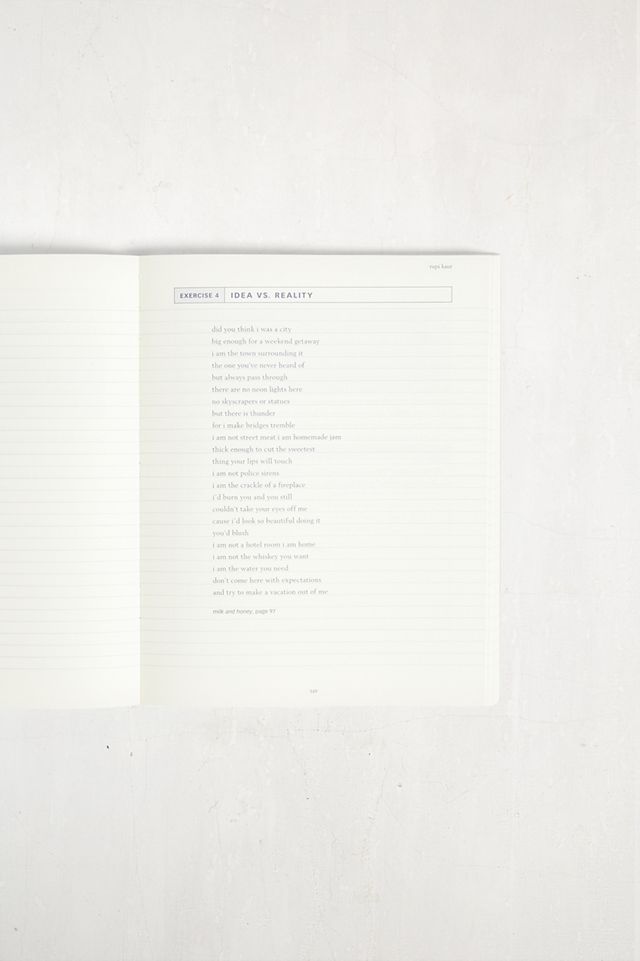 rupi kaur
EXERCISE 4 IDEA VS. REALITY
did you think i was a city
big enough for a weekend getaway
i am the town surrounding it
the one you've never heard of
but always pass through
there are no neon lights here
no skyscrapers or statues
but there is thunder
for i make bridges tremble
i am not street meat i am homemade jam
thick enough to cut the sweetest
thing your lips will touch
i am not police sirens
i am the crackle of a fireplace
i'd burn you and you still
couldn't take your eyes off me
cause i'd look so beautiful doing it
you'd blush
i am not a hotel room i am home
i am not the whiskey you want
i am the water you need
don't come here with expectations
and try to make a vacation out of me
milk and honey, page 97